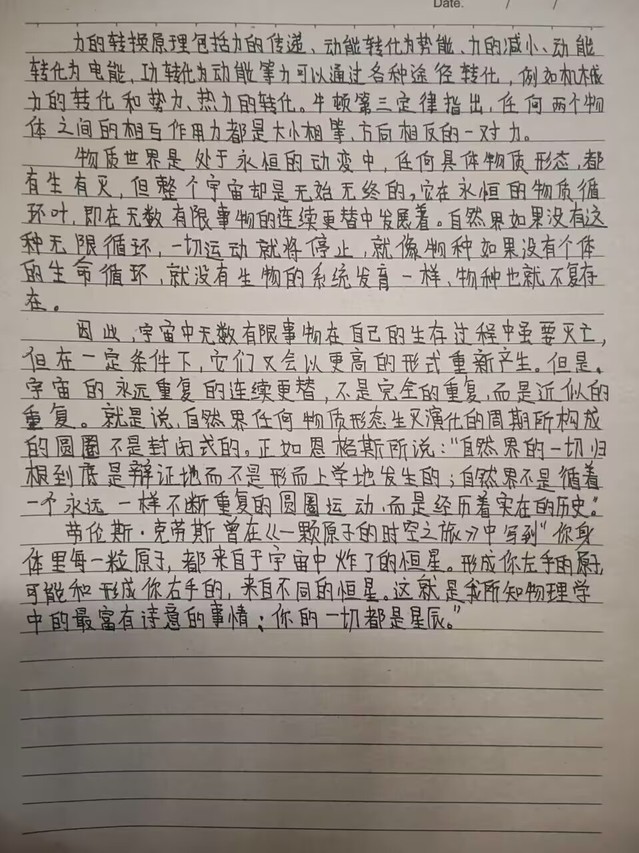 Date. / /
力的转换原理包括力的传递、动能转化为势能、力的减小、动能
转化为电能，功转化为动能等力可以通过各种途径转化，例如机械
力的转化和势力、热力的转化。牛顿第三定律指出，任何两个物
体之间的相互作用力都是大小相等，方向相反的一对力。
物质世界是处于永恒的动变中，任何具体物质形态，都
有生有灭，但整个宇宙却是无始无终的。它在永恒的物质循
环叶，即在无数有限事物的连续更替中发展着。自然界如果没有这
种无限循环，一切运动就将停止，就像物种如果没有个体
的生命循环，就没有生物的系统发育一样，物种也就不复存
在。
因此，宇宙中无数有限事物在自己的生存过程中虽要灭亡，
但在一定条件下，它们又会以更高的形式重新产生。但是，
宇宙的永远重复的连续更替，不是完全的重复，而是近似的
重复。就是说，自然界任何物质形态生灭演化的周期所构成
的圆圈不是封闭式的。正如恩格斯所说："自然界的一切归
根到底是辩证地而不是形而上学地发生的；自然界不是循着
一个永远一样不断重复的圆圈运动，而是经历着实在的历史。"
劳伦斯·克劳斯曾在《一颗原子的时空之旅》中写到"你身
体里每一粒原子，都来自于宇宙中炸了的恒星。形成你左手的原子，
可能和形成你右手的，来自不同的恒星。这就是我所知物理学
中的最富有诗意的事情；你的一切都是星辰。"